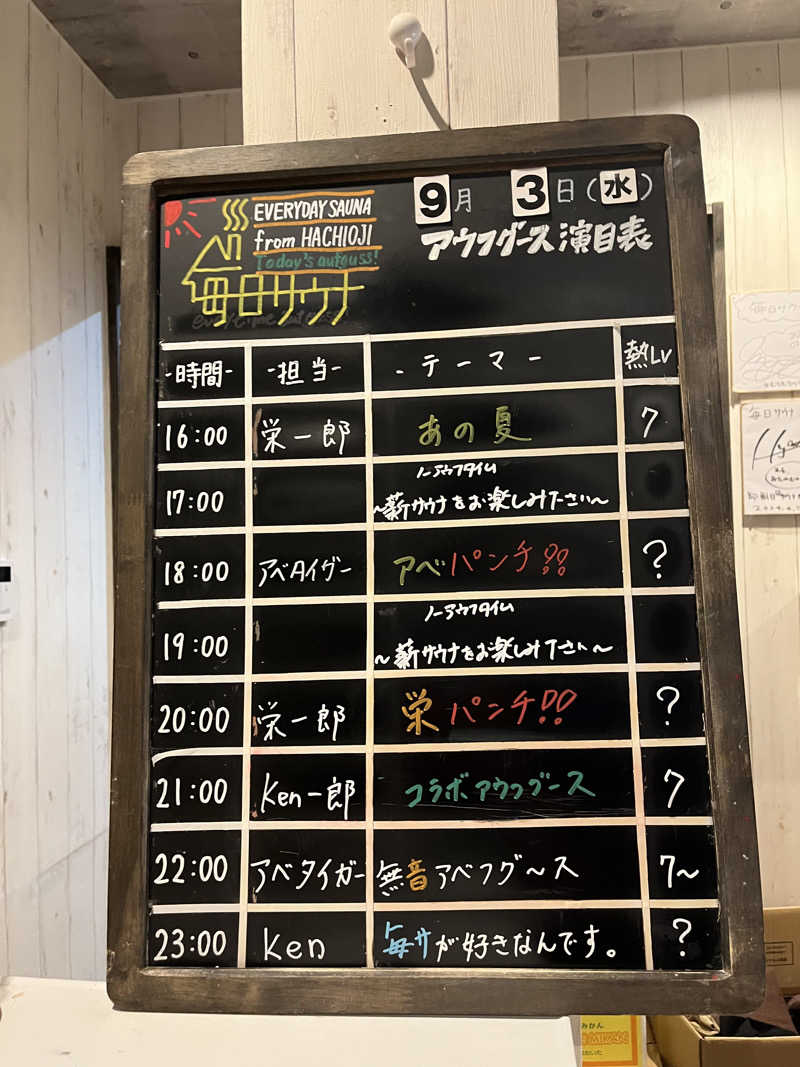 9月 3日(水)
EVERYDAY SAUNA
from HACHIOJI
Today's aufguss!
毎日サウナ
アウフグース演目表
-時間- -担当- -テーマー 熱LV
16:00 栄一郎 あの夏 7
ノーアウフタイム
17:00 ~薪サウナをお楽しみ下さい~
18:00 アベAイガー アベパンチ!! ?
ノーアウフタイム
19:00 ~薪サウナをお楽しみ下さい~
20:00 栄一郎 栄パンチ!! ?
21:00 Ken一郎 コラボアウフグース 7
22:00 アベタイガー 無音アベフグ~ス 7~
23:00 Ken 毎サが好きなんです。 ?
毎日サウナ
毎日サウナ
みかん